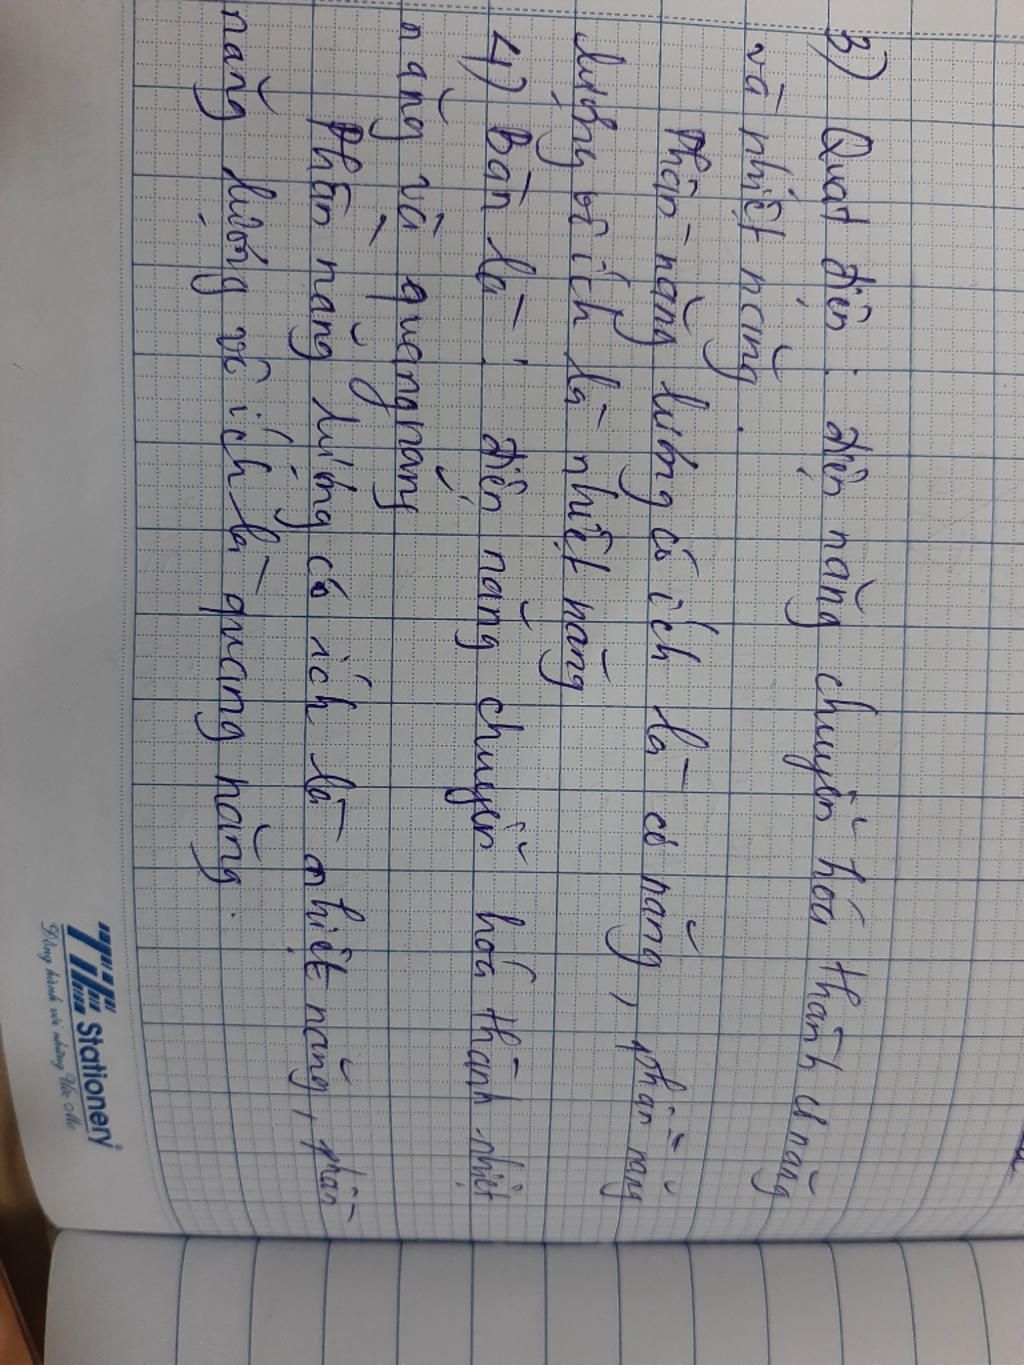 3) Quạt điện : điện năng chuyển hóa thành cơ năng
và nhiệt năng.
Phần năng lượng có ích là cơ năng, phần năng
lượng vô ích là nhiệt năng
4) Bàn là : điện năng chuyển hóa thành nhiệt
năng và quang năng
Phần năng lượng có ích là nhiệt năng, phần
năng lượng vô ích là quang năng.
Stationery
Đồng hành với những Ước Mơ